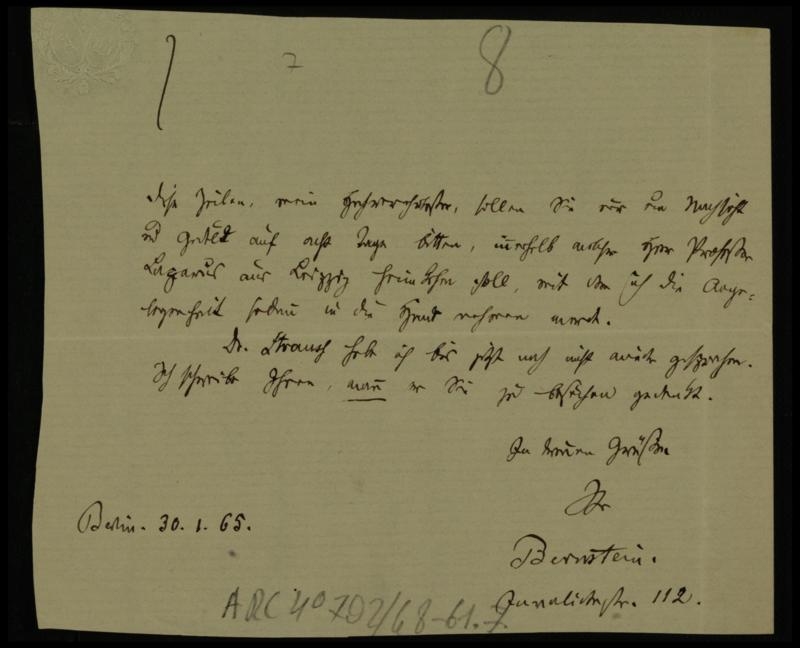 7
8
Diese Zeilen, mein Hochverehrtester, sollen Sie nur um Nachsicht
und Geduld auf acht Tage bitten, innerhalb welcher Herr Professor
Lazarus aus Leipzig heimkehren soll, mit dem ich die Ange-
legenheit sodann in die Hand nehmen werde.
Dr. Strausch habe ich bis jetzt noch nicht wieder gesprochen.
Ich schreibe Ihnen, wann er Sie zu besuchen gedenkt.
In treuen Grüßen
Ihr
Bernstein.
Berlin. 30. 1. 65.
Invalidenstr. 112.
ARC 4° 792/68-61.7.